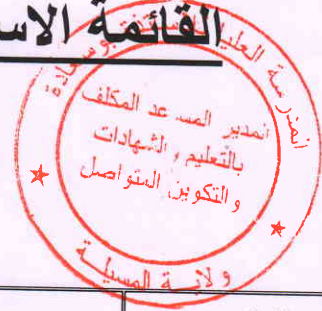 القائمة الاسـ
المدرسة العليا للأساتذة بوسعادة
المدير المساعد المكلف
بالتعليم و الشهادات
و التكوين المتواصل
ولاية المسيلة